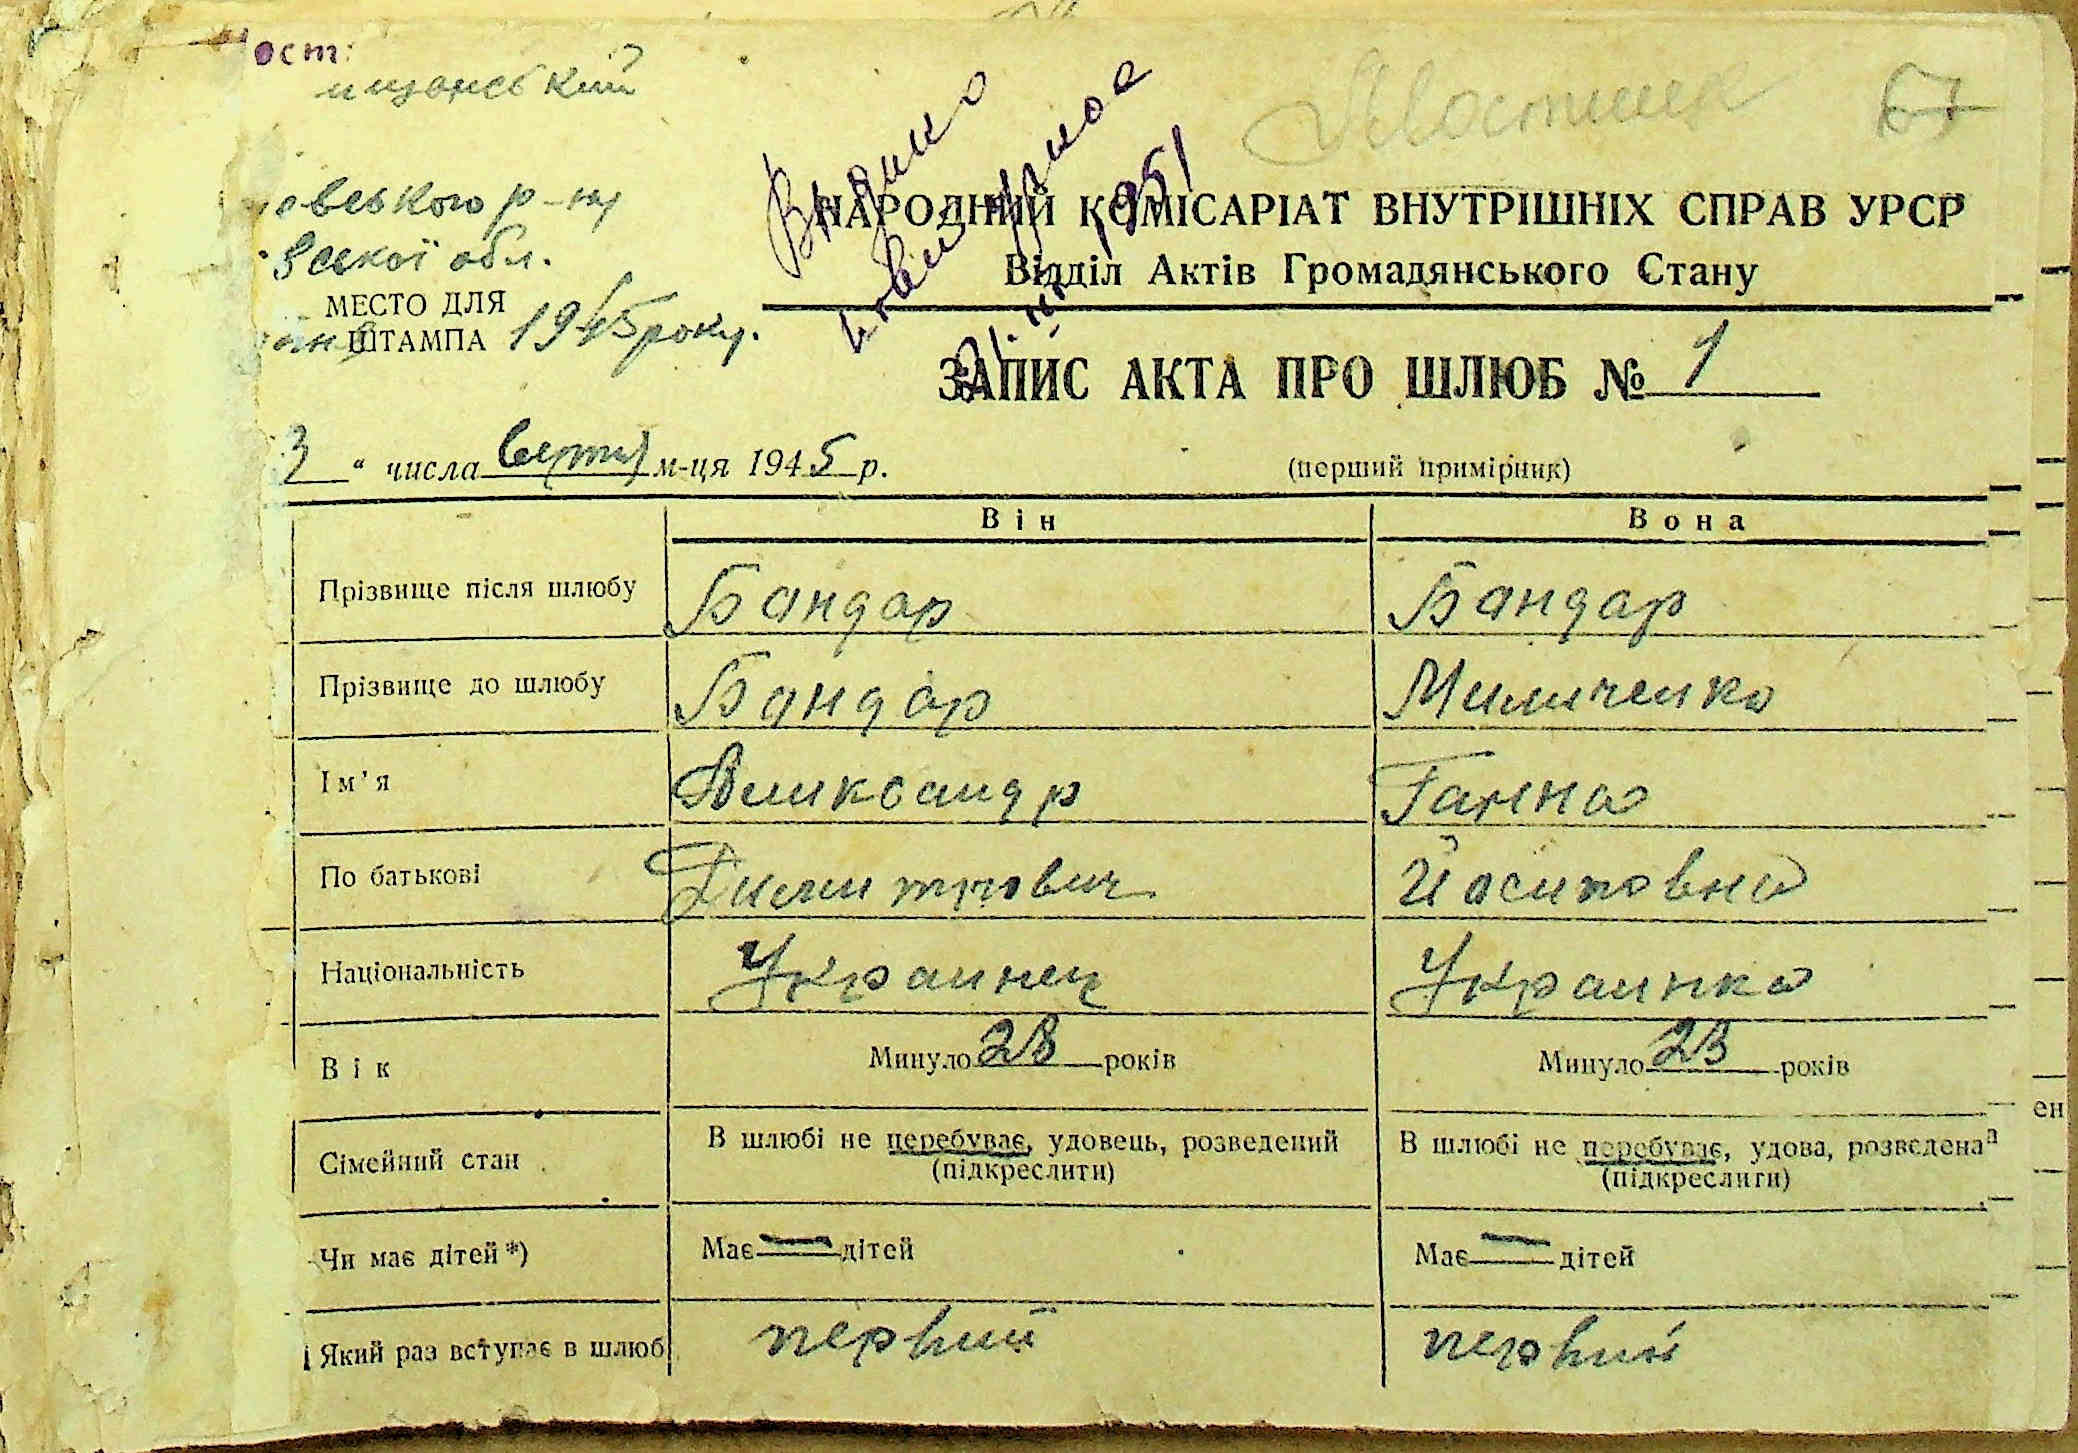 ост:
ищанський
евського р-ну
вської обл.
МЕСТО ДЛЯ
ШТАМПА 1945 року.
Видано
1951
57
НАРОДНИЙ КОМІСАРІАТ ВНУТРІШНІХ СПРАВ УРСР
Відділ Актів Громадянського Стану
ЗАПИС АКТА ПРО ШЛЮБ № 1
3 " числа м-ця 1945 р.
(перший примірник)
Він Вона
Прізвище після шлюбу Бандар Бандар
Прізвище до шлюбу Бандар
Ім'я Александр Ганна
По батькові Дмитрович Йосиповна
Національність Украинец Украинка
Вік Минуло 28 років Минуло 23 років
Сімейний стан В шлюбі не перебуває, удовець, розведений В шлюбі не перебуває, удова, розведена
(підкреслити) (підкреслити)
Чи має дітей *) Має — дітей Має — дітей
Який раз вступає в шлюб первий первий
ен